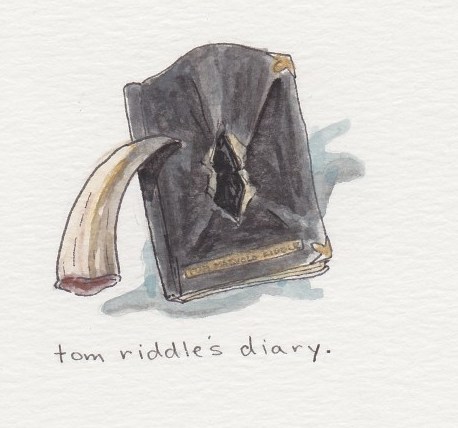 TOM MARVOLO RIDDLE
tom riddle's diary.